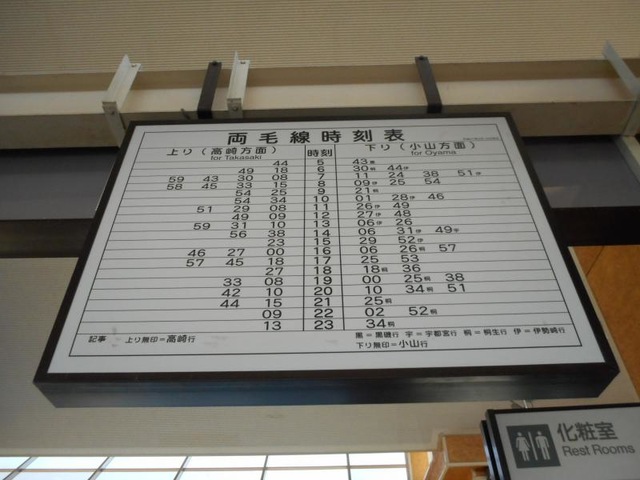 両毛線時刻表
上り（高崎方面） 時刻 下り（小山方面）
for Takasaki for Oyama
44 5 43黒
49 18 6 30桐 44伊
59 43 30 08 7 11 24 38 51伊
58 45 33 15 8 09伊 25 54
54 25 9 21桐
54 34 10 01 28伊 46
51 29 08 11 26伊 49
49 09 12 27伊 48
59 31 10 13 06伊 26
56 38 14 06 31伊 49宇
23 15 29 52伊
46 27 00 16 06 26桐 57
57 45 18 17 25 53
27 18 18桐 36
33 08 19 00 25桐 38
42 10 20 10 34桐 51
44 15 21 25桐
09 22 02 52桐
13 23 34桐
記事 上り無印=高崎行 黒=黒磯行 宇=宇都宮行 桐=桐生行 伊=伊勢崎行
下り無印=小山行
化粧室
Rest Rooms